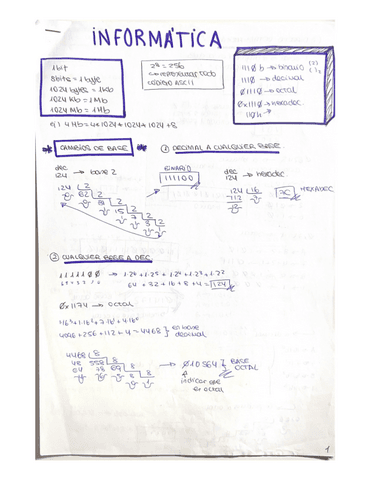 INFORMÁTICA
1 bit
8 bits = 1 byte
1024 bytes = 1Kb
1024 Kb = 1Mb
1024 Mb = 1Mb
2⁸ = 256
CÓDIGO ASCII
1110 b → binario
1110 → decimal
01110 → octal
0x1110 → hexadec.
110h
4 Mb = 4×1024×1024×1024×8
CAMBIOS DE BASE
① DECIMAL A CUALQUIER BASE
dec
124 → base 2
124 | 2
62 | 2
15 | 2
7 | 2
3 | 2
111100
dec
124 → hexadec.
124 | 16
112 7
7C HEXADEC
② CUALQUIER BASE A DEC.
1111100 → 1·2⁶+1·2⁵+1·2⁴+1·2³+1·2²
64 + 32 + 16 + 8 + 4 = 124
0x1174 → octal
4096 + 256 + 112 + 4 = 4468 } en base decimal
4468 | 8
48 558 | 8
04 78 69 | 8
→ 010564 } BASE OCTAL
indicar que es octal
1